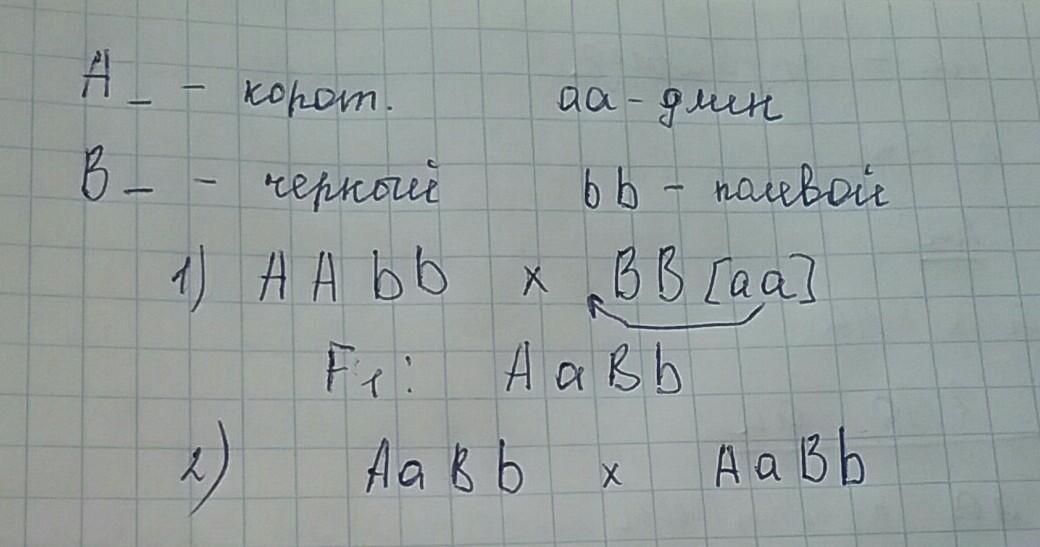 A_ - корот. aa - длин
B_ - черный bb - палевой
1) AAbb x BB[aa]
F1: AaBb
2) AaBb x AaBb